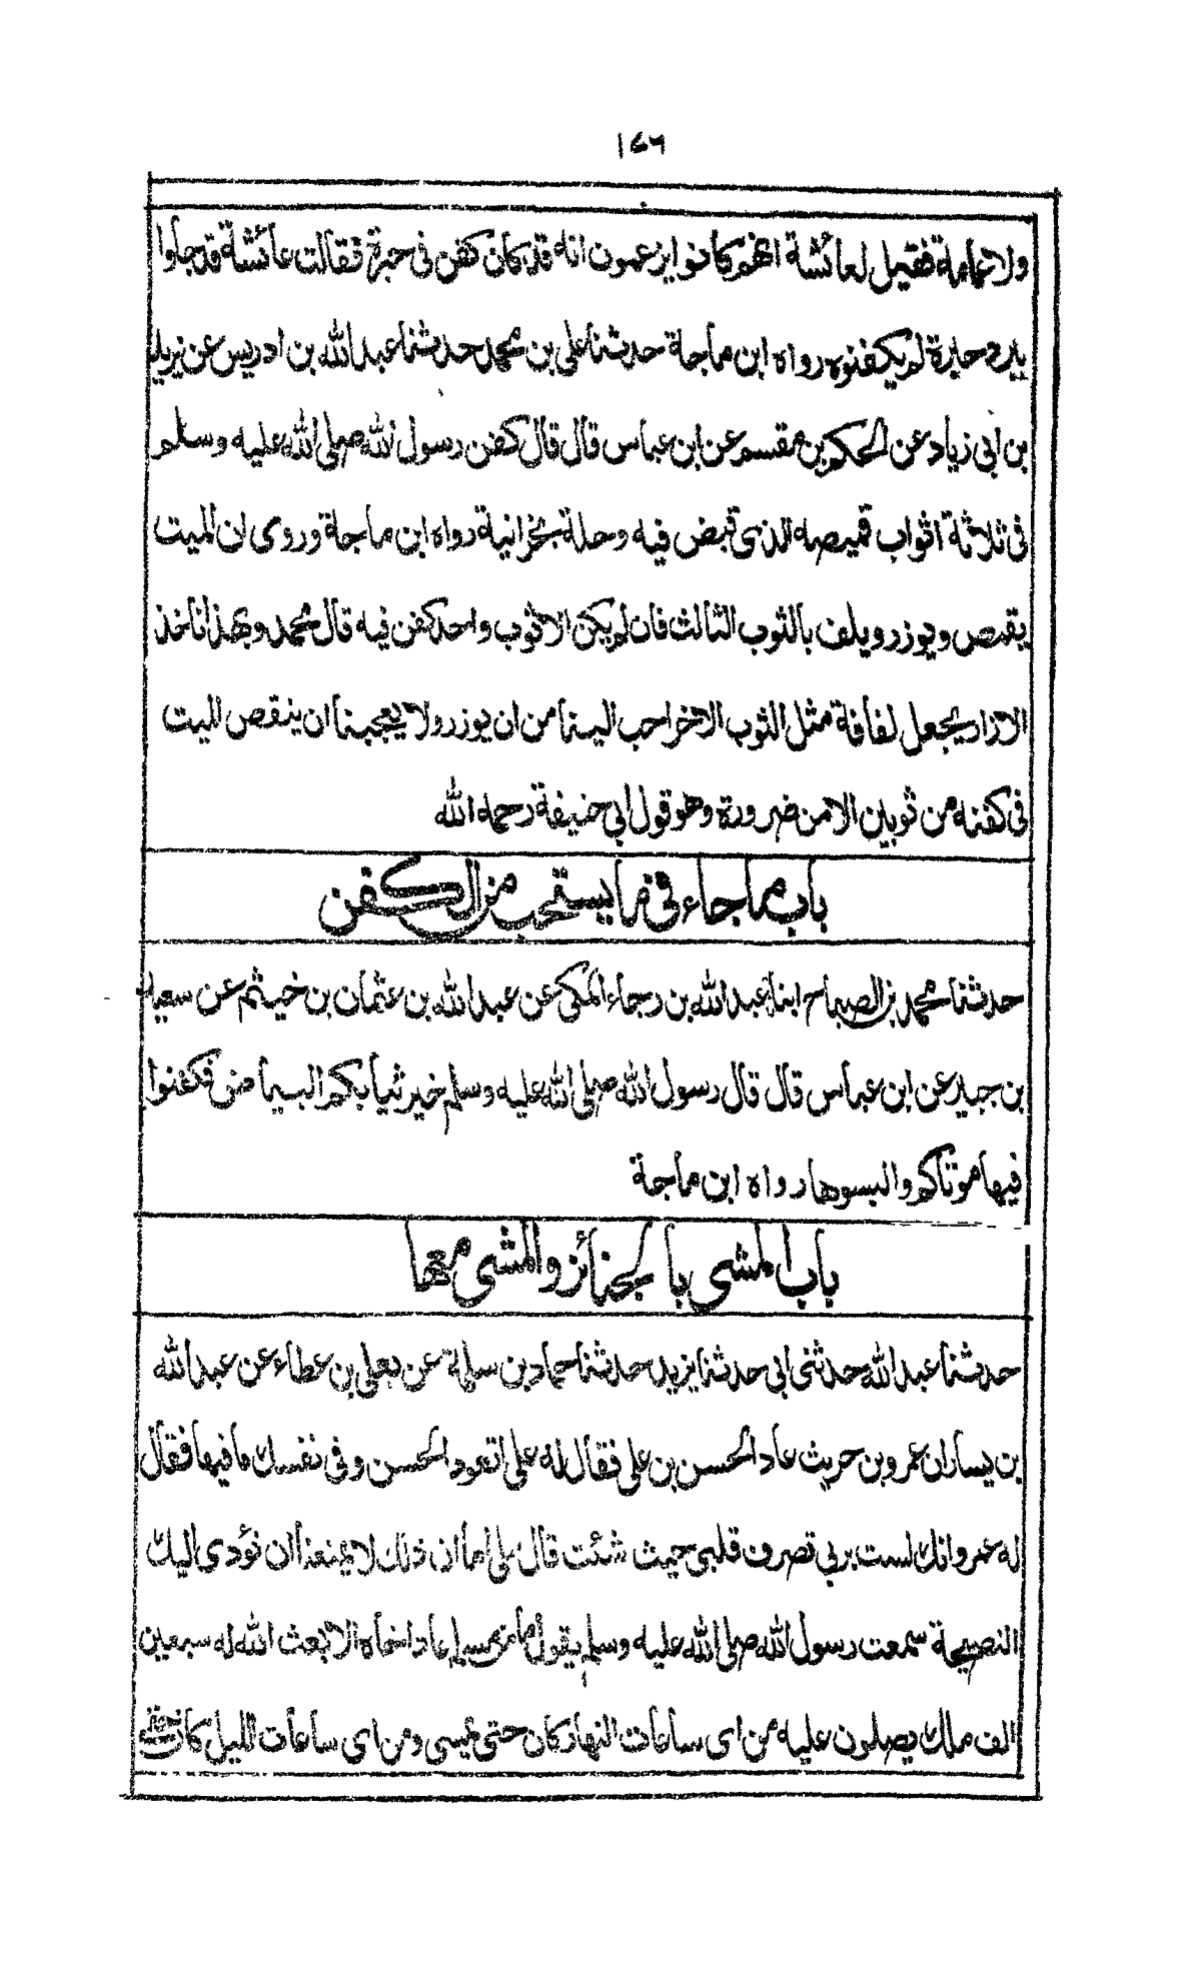 ١٧٦
ولا عمامة فقيل لعائشة انهم كانوا يزعمون انه قد كان كفن فى حبرة فقالت عائشة قد جاوا
ببرد حبرة لم يكفنوه رواه ابن ماجة حدثنا على بن محمد حدثنا عبد الله بن ادريس عن يزيد
بن ابى زياد عن الحكم بن مقسم عن ابن عباس قال قال كفن رسول الله صلى الله عليه وسلم
فى ثلاثة اثواب قميصه الذى قبض فيه وحلة نجرانية رواه ابن ماجة وروى ان الميت
يقمص ويوزر ويلف بالثوب الثالث فان لم يكن الا ثوب واحد كفن فيه قال محمد وبهذا ناخذ
الازار يجعل لفافة مثل الثوب الاخر احب الينا من ان يوزر ولا يعجبنا ان ينقص الميت
فى كفنه من ثوبين الا من ضرورة وهو قول ابى حنيفة رحمه الله
باب ما جاء فى ما يستحب من الكفن
حدثنا محمد بن الصباح ابنا عبد الله بن رجاء المكى عن عبد الله بن عثمان بن خيثم عن سعيد
بن جبير عن ابن عباس قال قال رسول الله صلى الله عليه وسلم خير ثيابكم البياض فكفنوا
فيها موتاكم والبسوها رواه ابن ماجة
باب المشى بالجنائز والمشى معها
حدثنا عبد الله حدثنى ابى حدثنا يزيد حدثنا حماد بن سلمة عن يعلى بن عطاء عن عبد الله
بن يسار ان عمرو بن حريث عاد الحسن بن على فقال له على اتعود الحسن وفى نفسك ما فيها فقال
له عمرو انك لست بربى تصرف قلبى حيث شئت قال على اما ان ذلك لا يمنعنا ان نؤدى اليك
النصيحة سمعت رسول الله صلى الله عليه وسلم يقول ما من مسلم عاد اخاه الا بعث الله له سبعين
الف ملك يصلون عليه من اى ساعات النهار كان حتى يمسى ومن اى ساعات الليل كان حتى